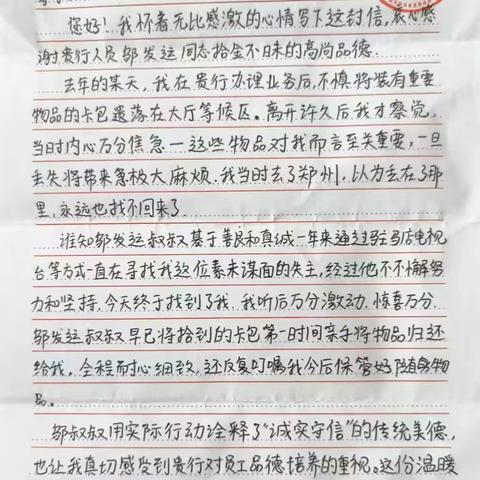 您好！我怀着无比感激的心情写下这封信，衷心感
谢贵行人员邬发运同志拾金不昧的高尚品德。
去年的某天，我在贵行办理业务后，不慎将装有重要
物品的卡包遗落在大厅等候区。离开许久后我才察觉，
当时内心万分焦急一这些物品对我而言至关重要，一旦
丢失将带来急极大麻烦.我当时去了郑州，以为丢在了那
里，永远也找不回来了.
谁知邬发运叔叔基于善良和真诚一年来通过驻马店电视
台等方式一直在寻找我这位素未谋面的失主，经过他不不懈努
力和坚持，今天终于找到了我.我听后万分激动、惊喜万分
邬发运叔叔早已将拾到的卡包第一时间亲手将物品归还
给我，全程耐心细致，还反复叮嘱我今后保管好随身物
品。
邬叔叔用实际行动诠释了“诚实守信”的传统美德，
也让我真切感受到贵行对员工品德培养的重视。这份温暖